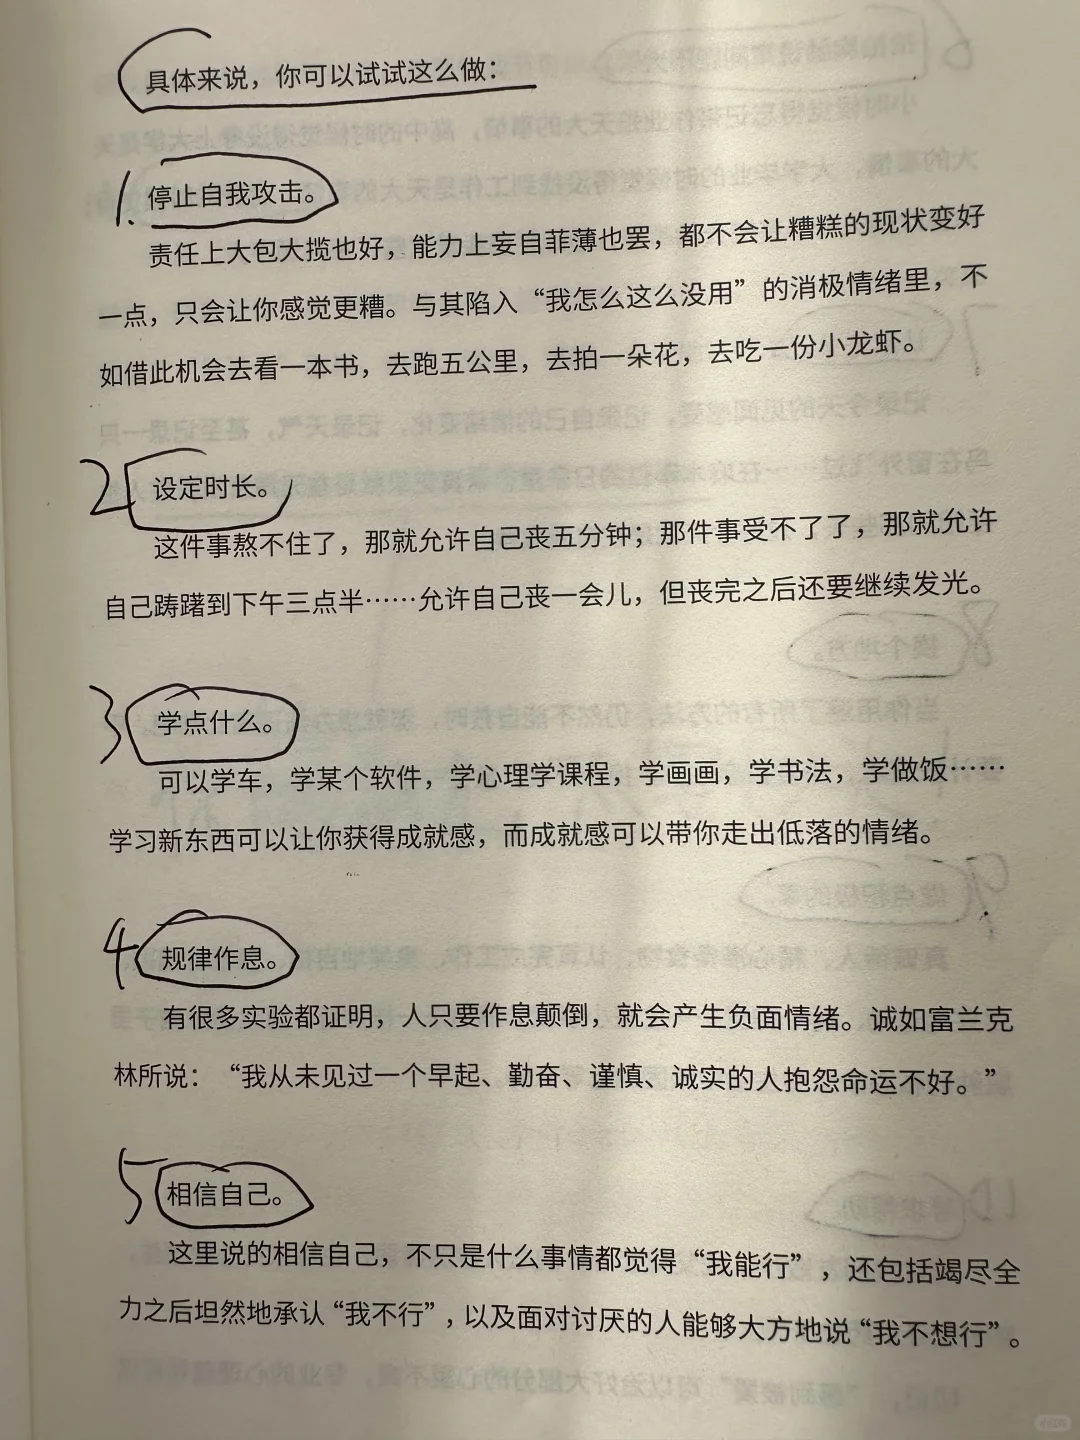 具体来说，你可以试试这么做：
1.停止自我攻击。
责任上大包大揽也好，能力上妄自菲薄也罢，都不会让糟糕的现状变好
一点，只会让你感觉更糟。与其陷入“我怎么这么没用”的消极情绪里，不
如借此机会去看一本书，去跑五公里，去拍一朵花，去吃一份小龙虾。
2 设定时长。
这件事熬不住了，那就允许自己丧五分钟；那件事受不了了，那就允许
自己踌躇到下午三点半……允许自己丧一会儿，但丧完之后还要继续发光。
3 学点什么。
可以学车，学某个软件，学心理学课程，学画画，学书法，学做饭……
学习新东西可以让你获得成就感，而成就感可以带你走出低落的情绪。
4 规律作息。
有很多实验都证明，人只要作息颠倒，就会产生负面情绪。诚如富兰克
林所说：“我从未见过一个早起、勤奋、谨慎、诚实的人抱怨命运不好。”
5 相信自己。
这里说的相信自己，不只是什么事情都觉得“我能行”，还包括竭尽全
力之后坦然地承认“我不行”，以及面对讨厌的人能够大方地说“我不想行”。